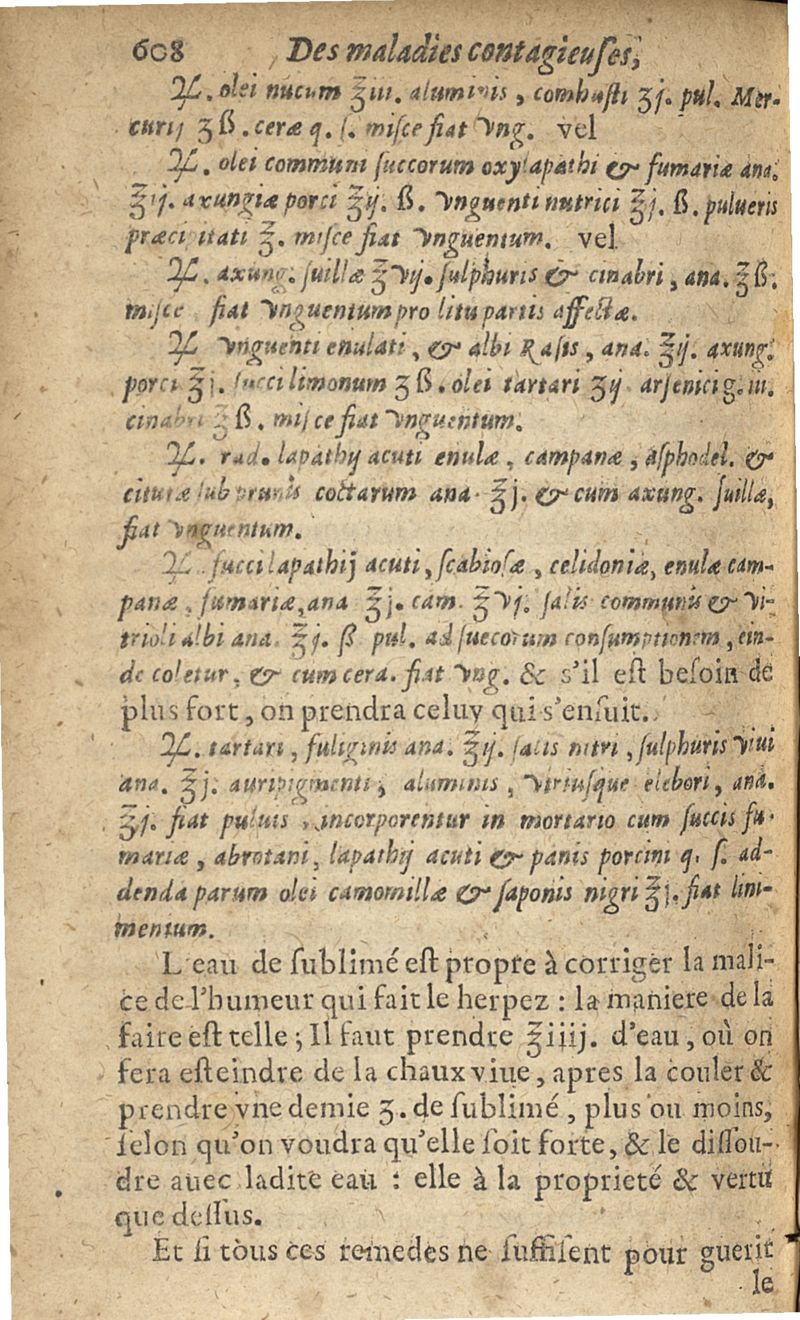 608 Des maladies contagieuses,
♃. olei nucum ℥iii. aluminis, combusti ʒj. pul. Mer-
curij ʒß. ceræ q. ſ. miſce fiat vng. vel
♃. olei communi ſuccorum oxylapathi & fumariæ ana.
℥ij. axungiæ porci ℥ij. ß. vnguenti nutrici ℥j. ß. pulueris
præcipitati ℥. miſce fiat vnguentum. vel
♃. axung. ſuillæ ℥vij. ſulphuris & cinabri, ana. ℥ß.
miſce fiat vnguentum pro litu partis affectæ.
♃ vnguenti enulati, & albi Raſis, ana. ℥ij. axung.
porci ℥j. ſucci limonum ʒß. olei tartari ʒij arſenici g. iii.
cinabri ℥ß. miſce fiat vnguentum.
♃. rad. lapathij acuti enulæ, campanæ, aſphodel. &
citutæ ſub prunis coctarum ana. ℥j. & cum axung. ſuillæ,
fiat vnguentum.
♃. ſucci lapathij acuti, ſcabioſæ, celidoniæ, enulæ cam-
panæ, fumariæ, ana ℥j. cam. ℥vj. ſalis communis & vi-
trioli albi ana. ℥j. ß pul. ad ſuecorum conſumptionem, ein-
de coletur, & cum cera. fiat vng. & s'il eſt beſoin de
plus fort, on prendra celuy qui s'enſuit.
♃. tartari, fuliginis ana. ℥ij. ſalis nitri, ſulphuris vivi
ana. ℥j. auripigmenti, aluminis, vtriuſque elebori, ana.
℥j. fiat puluis, incorporentur in mortario cum ſuccis fu-
mariæ, abrotani, lapathij acuti & panis porcini q. ſ. ad-
denda parum olei camomillæ & ſaponis nigri ℥j. fiat lini-
mentum.
L'eau de ſublimé eſt propre à corriger la mali-
ce de l'humeur qui fait le herpez : la maniere de la
faire eſt telle ; Il faut prendre ℥iiij. d'eau, où on
fera eſteindre de la chaux viue, apres la couler &
prendre vne demie ʒ. de ſublimé, plus ou moins,
ſelon qu'on voudra qu'elle ſoit forte, & le diſſou-
dre auec ladite eau : elle à la proprieté & vertu
que deſſus.
Et ſi tous ces remedes ne ſuffiſent pour guerir
le